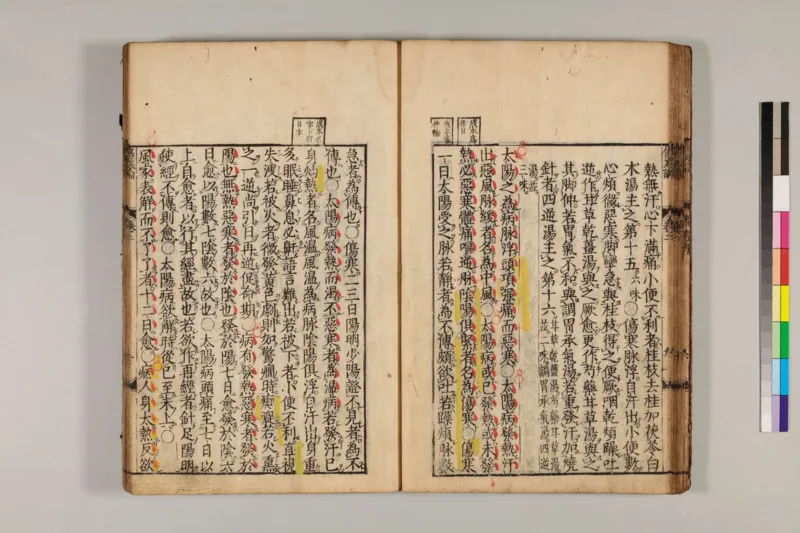 熱無汗心下滿痛小便不利者桂枝去桂加茯苓白
木湯主之第十五六味○傷寒脉浮自汗出小便數
心煩微惡寒脚攣急與桂枝得之便厥咽乾煩躁吐
逆作甘草乾薑湯與之厥愈更作芍藥甘草湯與之
其脚伸若胃氣不和與調胃承氣湯若重發汗加燒
針者四逆湯主之第十六甘草乾薑湯芍藥甘草湯並二味調胃承氣湯四逆
湯並三味
太陽之為病脉浮頭項強痛而惡寒○太陽病發熱汗
出惡風脉緩者名為中風○太陽病或已發熱或未發
熱必惡寒體痛嘔逆脉陰陽俱緊者名為傷寒○傷寒
一日太陽受之脉若靜者為不傳頗欲吐若躁煩脉數
急者為傳也○傷寒二三日陽明少陽證不見者為不
傳也○太陽病發熱而渴不惡寒者為溫病若發汗已
身灼熱者名風溫風溫為病脉陰陽俱浮自汗出身重
多眠睡鼻息必鼾語言難出若被下者小便不利直視
失溲若被火者微發黃色劇則如驚癇時瘈瘲若火熏
之一逆尚引日再逆促命期○病有發熱惡寒者發於
陽也無熱惡寒者發於陰也發於陽七日愈發於陰六
日愈以陽數七陰數六故也○太陽病頭痛至七日以
上自愈者以行其經盡故也若欲作再經者針足陽明
使經不傳則愈○太陽病欲解時從巳至未上○
風家表解而不了了者十二日愈○病人身太熱反欲